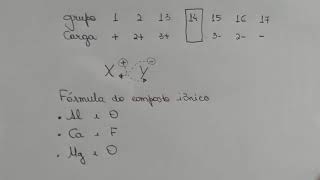 grupo 1 2 13 14 15 16 17
Carga + 2+ 3+ 3- 2- -
X + Y -
Fórmula do composto iônico
• Al e O
• Ca e F
• Mg e O